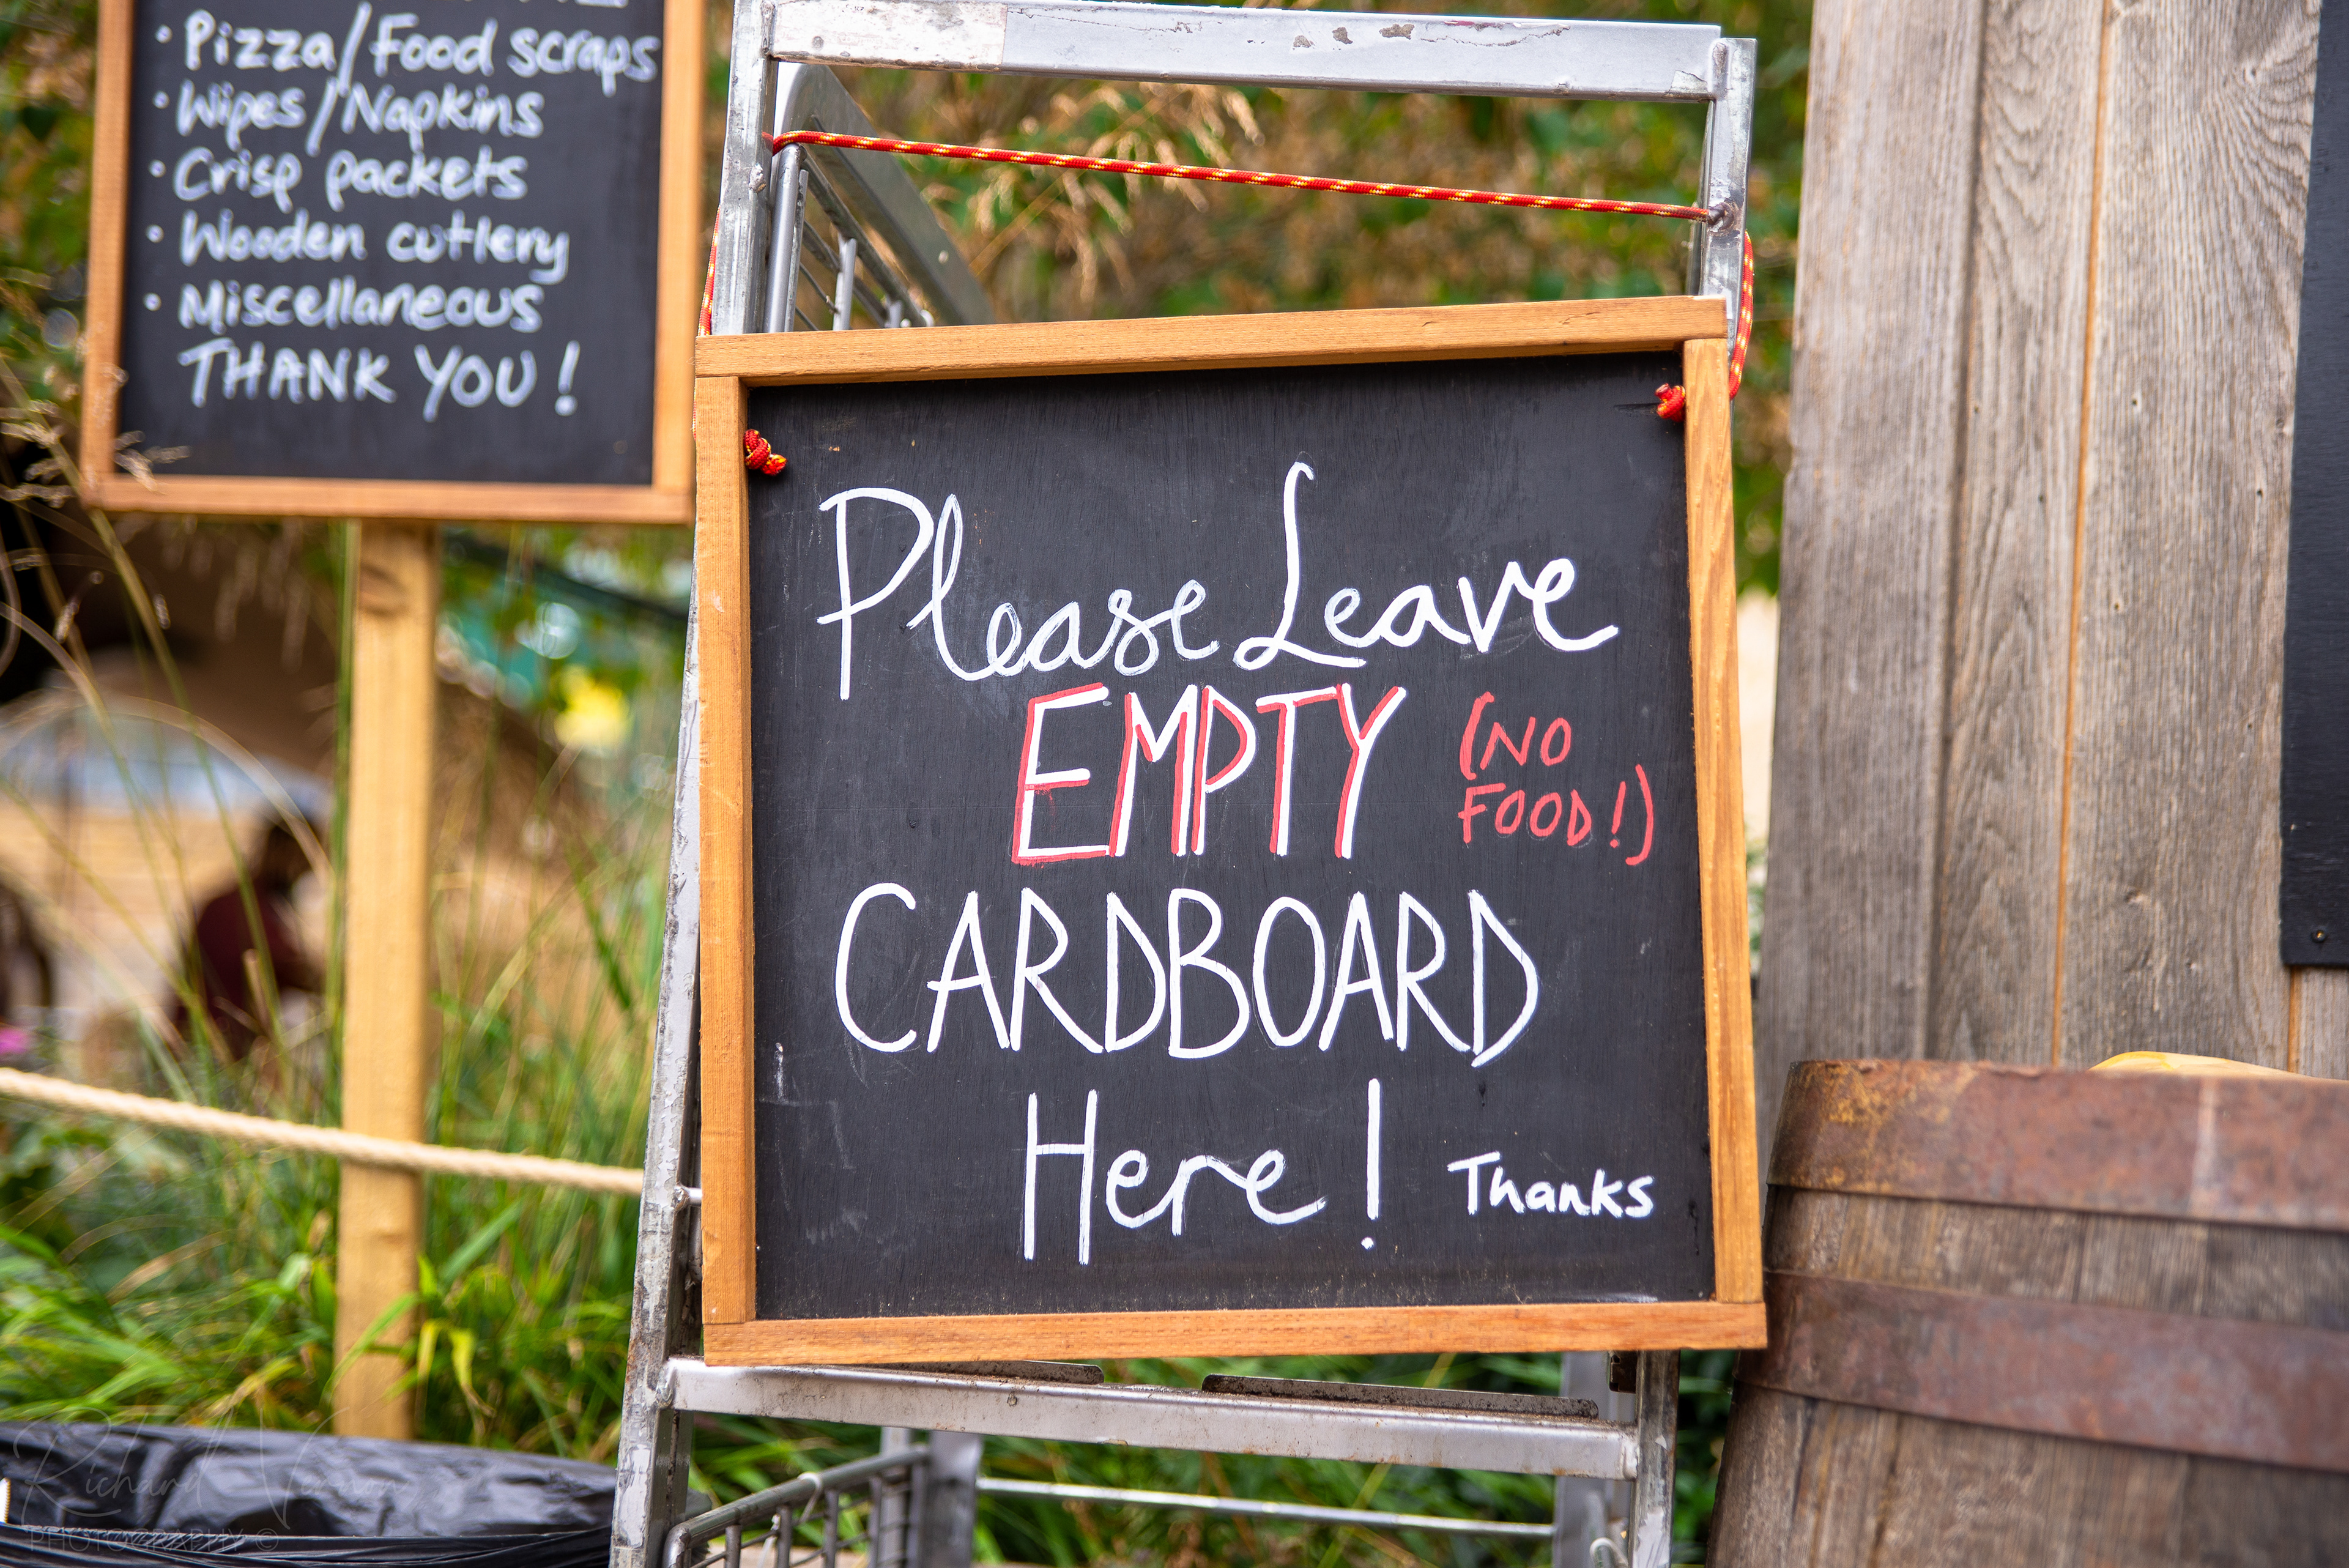 • Pizza/Food scraps
• Wipes/Napkins
• Crisp packets
• Wooden cutlery
• Miscellaneous
THANK YOU!
Please Leave
EMPTY (NO
FOOD!)
CARDBOARD
Here! Thanks
Richard Vernon
PHOTOGRAPHY ©